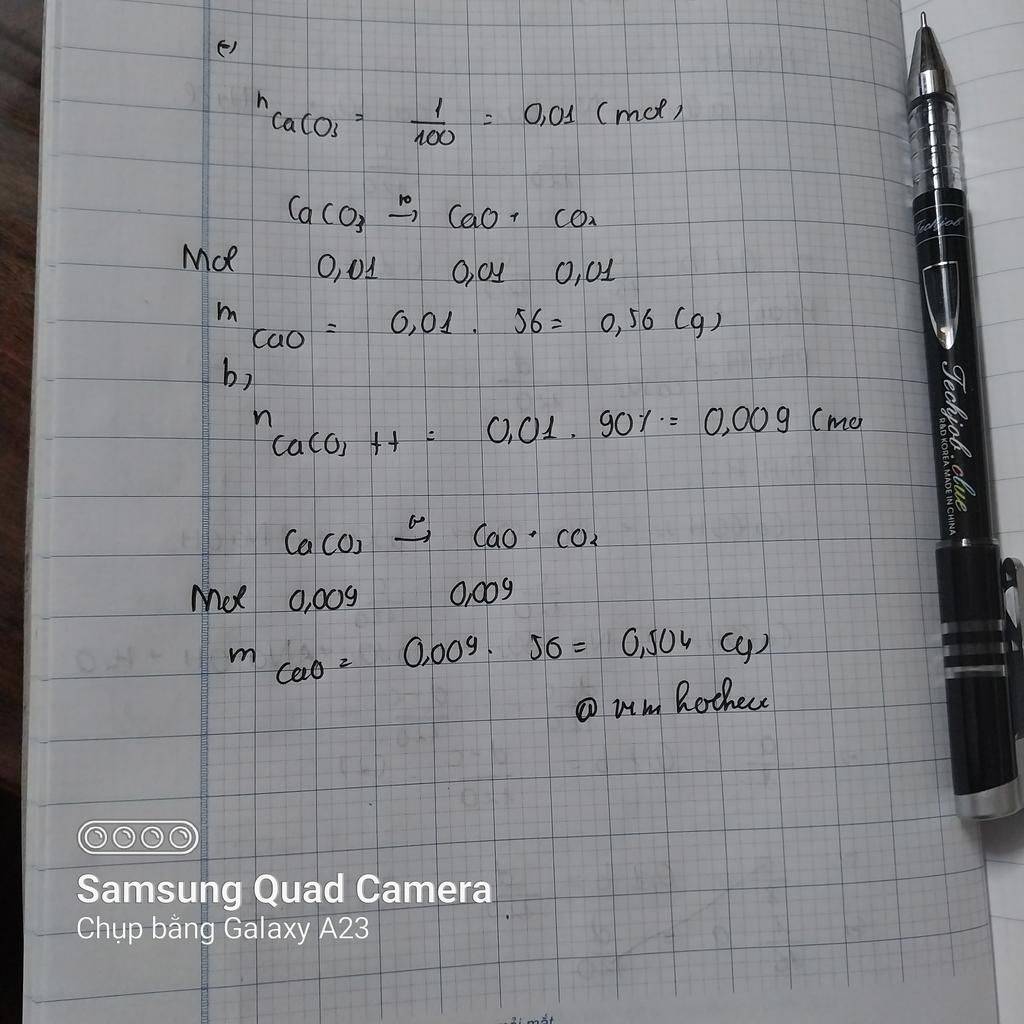 a,
n CaCO3 = 1/100 = 0,01 (mol)
CaCO3 t° → CaO + CO2
Mol 0,01 0,01 0,01
m CaO = 0,01 . 56 = 0,56 (g)
b,
n CaCO3 tt = 0,01 . 90% = 0,009 (mo
CaCO3 t° → CaO + CO2
Mol 0,009 0,009
m CaO = 0,009 . 56 = 0,504 (g)
Techjob
Techjob.clue
R&D KOREA.MADE IN CHINA
Samsung Quad Camera
Chụp bằng Galaxy A23
mỏi mắt